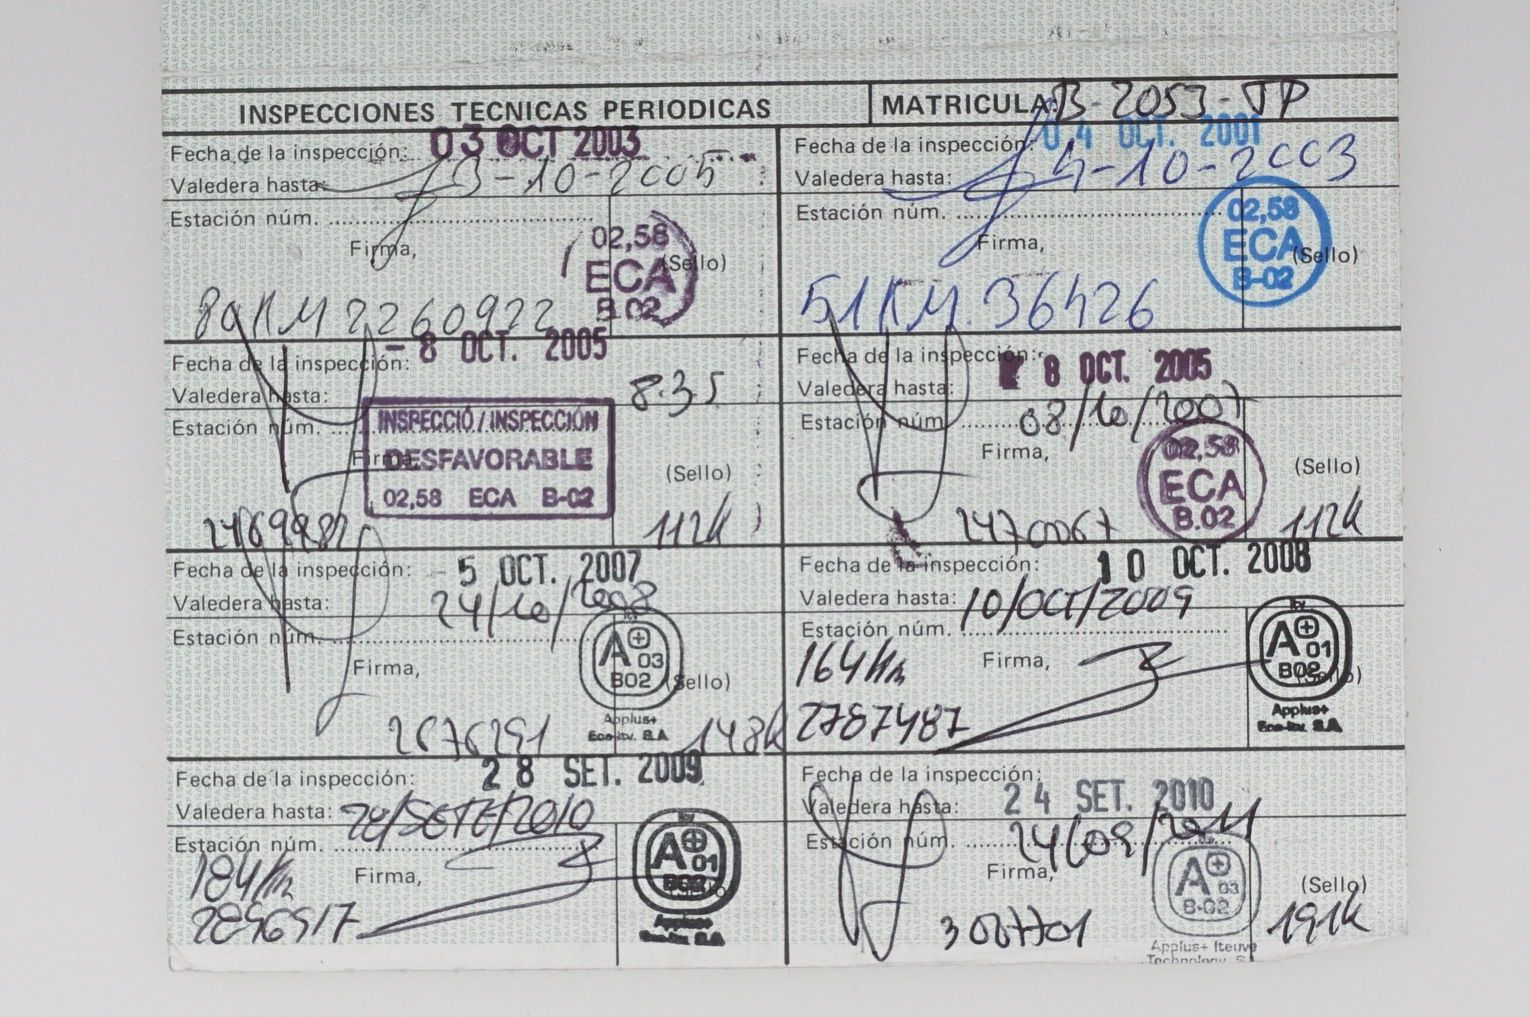 INSPECCIONES TECNICAS PERIODICAS
MATRICULA: B-2053-JP
Fecha de la inspección: 03 OCT 2003
Valedera hasta: 3-10-2005
Estación núm.
Firma,
(Sello)
02,58
ECA
B.02
80KM 2260922
Fecha de la inspección: 04 OCT. 2001
Valedera hasta: 4-10-2003
Estación núm.
Firma,
(Sello)
02,58
ECA
B-02
51KM. 36426
Fecha de la inspección: - 8 OCT. 2005
Valedera hasta: 8.35
Estación núm.
INSPECCIÓ / INSPECCIÓN
DESFAVORABLE
02,58 ECA B-02
Firma,
(Sello)
112K
Fecha de la inspección: 8 OCT. 2005
Valedera hasta:
Estación núm. 08/10/2007
Firma,
(Sello)
02,58
ECA
B.02
2470067 112K
Fecha de la inspección: - 5 OCT. 2007
Valedera hasta: 24/10/2008
Estación núm.
Firma,
(Sello)
itv
A 03
B02
Applus+
Eco-itv. S.A
2676291 148K
Fecha de la inspección: 10 OCT. 2008
Valedera hasta: 10/OCT/2009
Estación núm.
Firma,
164Km
2787487
itv
A 01
B02
(Sello)
Applus+
Eco-itv. S.A.
Fecha de la inspección: 28 SET. 2009
Valedera hasta: 28/SETE/2010
Estación núm.
184Km
Firma,
2896917
itv
A 01
B02
(Sello)
Applus+
Eco-itv. S.A.
Fecha de la inspección:
Valedera hasta: 24 SET. 2010
Estación núm. 24/09/2011
Firma,
(Sello)
A 03
B-02
3007701 191K
Applus+ Iteuve
Technology, S.